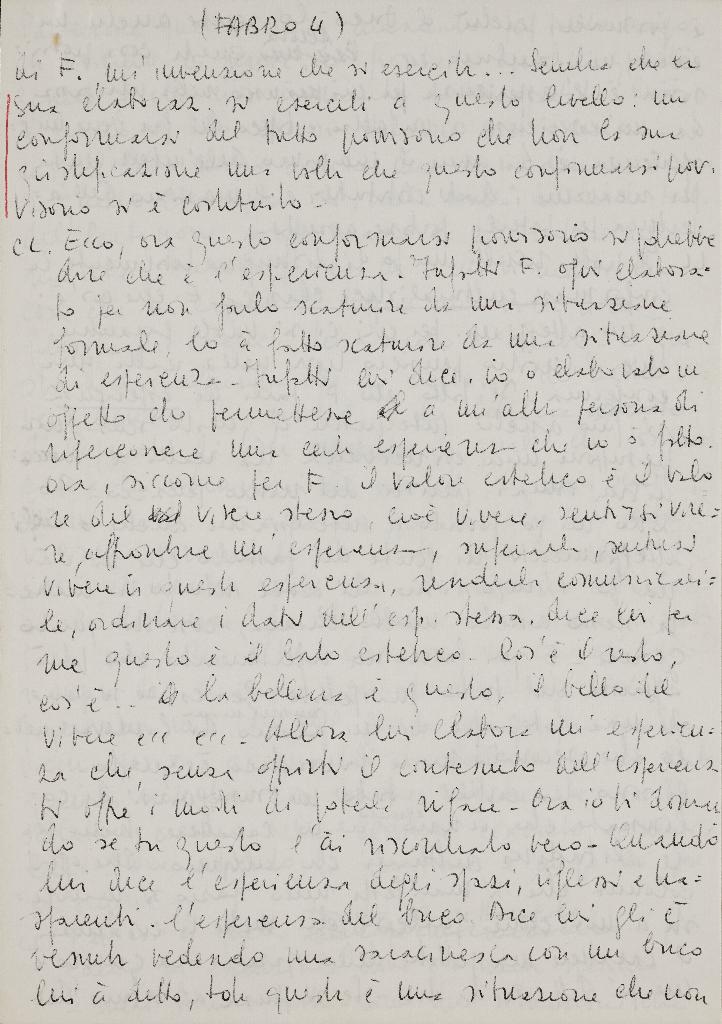 (FABRO 4)
di F., un'invenzione che si eserciti... Sembra che la
sua elaboraz. si eserciti a questo livello: un
conformarsi del tutto provvisorio che non la sua
giustificazione una volta che questo conformarsi prov-
visorio si è costituito.
CL. Ecco, ora questo conformarsi provvisorio si potrebbe
dire che è l'esperienza. Infatti F. ogni elabora-
to per non farlo scaturire da una situazione
formale, lo à fatto scaturire da una situazione
di esperienza. Infatti lui dice, io ò elaborato un
oggetto che permettesse a un'altra persona di
ripercorrere una certa esperienza che io ò fatto.
Ora, siccome per F. il valore estetico è il valo
re del vivere stesso, cioè vivere, sentirsi vive=
re, affrontare un'esperienza, superarla, sentirsi
vivere in questa esperienza, renderla comunicabi=
le, ordinare i dati dell'esp. stessa, dice lui per
me questo è il lato estetico. Cos'è il resto,
cos'è... la bellezza è questo, il bello del
vivere ecc ecc. Allora lui elabora un'esperien=
za che, senza offrirti il contenuto dell'esperienza
ti offre i modi di poterla rifare. Ora io ti doman
do se tu questo l'ài riscontrato vero. Quando
lui dice l'esperienza degli spazi, riflessi e tra=
sparenti. L'esperienza del buco. Dice lui gli è
venuta vedendo una saracinesca con un buco
lui à detto, toh questa è una situazione che non